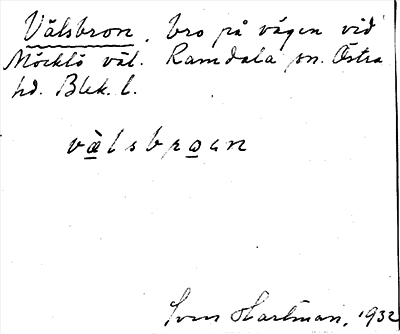 Välsbron, bro på vägen vid
Möcklö väl. Ramdala sn. Östra
hd. Blek. l.
välsbroan
Sven Hartman, 1932